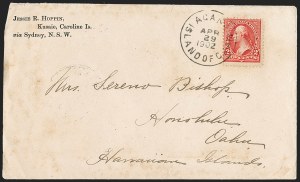 Jessie R. Hoppin,
Kusaie, Caroline Is.
via Sydney, N. S. W.
AGANA
ISLAND OF G
APR
29
1902
Mrs. Sereno Bishop
Honolulu
Oahu
Hawaiian Islands.